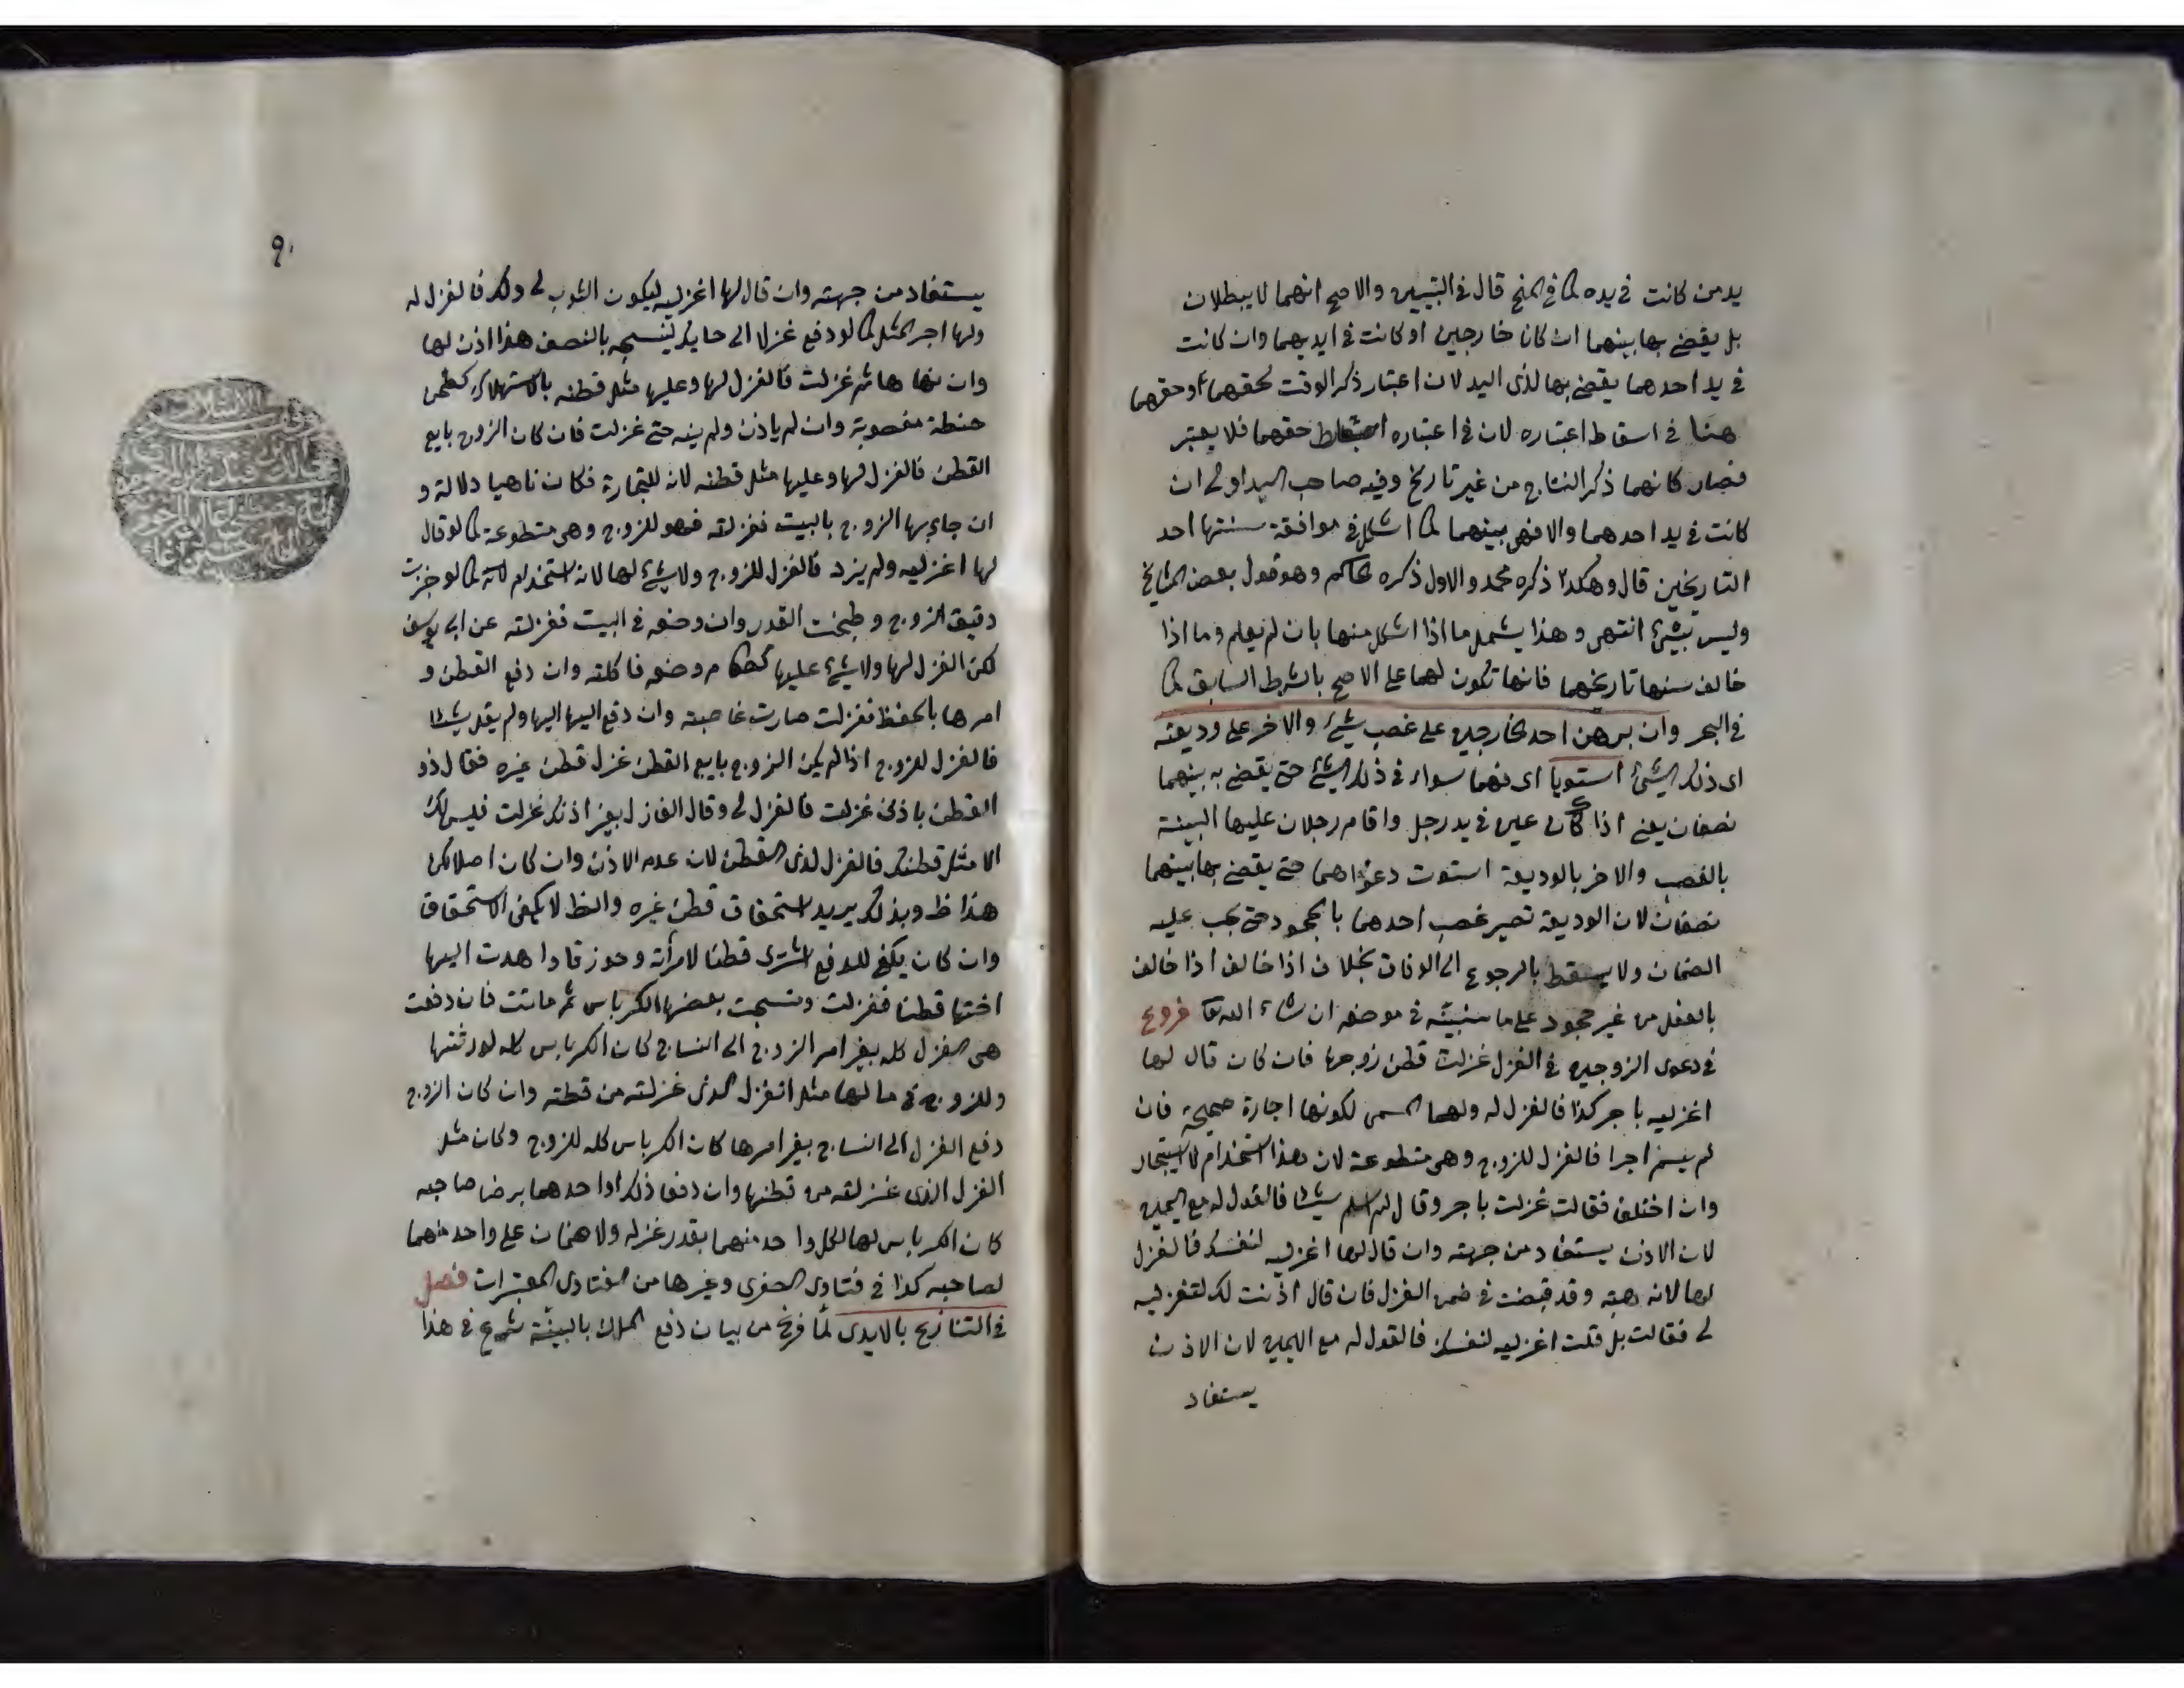 يد من كانت في يده كما في المنح قال في التبيين والاصح انهما لا يبطلان
بل يقضى بها بينهما ان كانا خارجين او كانت في ايديهما وان كانت
في يد احدهما يقضى بها لذي اليد لان اعتبار ذكر الوقت لحقهما وحقهما
هنا في اسقاط اعتباره لان في اعتباره اسقاط حقهما فلا يعتبر
فصار كانهما ذكر النتاج من غير تاريخ وفيه صاحب اليد اولى ان
كانت في يد احدهما والا فهي بينهما كما اشكل في موافقة سنها احد
التاريخين قال وهكذا ذكره محمد والاول ذكره الحاكم وهو قول بعض المشايخ
وليس بشيء انتهى وهذا يشمل ما اذا اشكل سنها بان لم يعلم وما اذا
خالف سنها تاريخهما فانها تكون لهما على الاصح بالشرط السابق كما
في البحر وان برهن احد الخارجين على غصب شيء والاخر على وديعته
اى ذلك الشيء استويا اى فهما سواء في ذلك الشيء حتى يقضى به بينهما
نصفان يعني اذا كان عين في يد رجل واقام رجلان عليها البينة
بالغصب والاخر بالوديعة استوت دعواهما حتى يقضى بها بينهما
نصفان لان الوديعة تصير غصب احدهما بالجحود حتى يجب عليه
الضمان ولا يسقط بالرجوع الى الوفاق بخلاف اذا خالف اذا خالف
بالفعل من غير جحود على ما سنبينه في موضعه ان شاء الله تعا فروع
في دعوى الزوجين في الغزل غزلت قطن زوجها فان كان قال لها
اغزليه باجر كذا فالغزل له ولها المسمى لكونها اجارة صحيحة فان
لم يسم اجرا فالغزل للزوج وهي متطوعة لان هذا استخدام لا استيجار
وان اختلفا فقالت غزلت باجر وقال لم اسم شيئا فالقول له مع اليمين
لان الاذن يستفاد من جهته وان قال لها اغزليه لنفسك فالغزل
لها لانه هبة وقد قبضت في ضمن الغزل فان قال اذنت لك لتغزليه
لى فقالت بل قلت اغزليه لنفسك فالقول له مع اليمين لان الاذن
يستفاد
٩٠
يستفاد من جهته وان قال لها اغزليه ليكون الثوب لى ولك فالغزل له
ولها اجر المثل كما لو دفع غزلا الى حايك لينسجه بالنصف هذا اذن لها
وان نهاها ثم غزلت فالغزل لها وعليها مثل قطنه بالاستهلاك كطحن
حنطة مغصوبة وان لم ياذن ولم ينه حتى غزلت فان كان الزوج بايع
القطن فالغزل لها وعليها مثل قطنه لانه للتجارة فكان ناهيا دلالة و
ان جاء بها الزوج بالبيت فغزلته فهو للزوج وهي متطوعة كما لو قال
لها اغزليه ولم يزد فالغزل للزوج ولا شيء لها لانه استخدام لانه كما لو خبزت
دقيق الزوج وطبخت القدر وان وضعه في البيت فغزلته عن ابي يوسف
لكن الغزل لها ولا شيء عليها وضعه فاكلته وان دفع القطن و
امرها بالحفظ فغزلت صارت غاصبته وان دفع اليها اليها ولم يقل شيئا
فالغزل للزوج اذا لم يكن الزوج بايع القطن غزل قطن غيره فقال ذو
القطن باذنى غزلت فالغزل لى وقال الغازل بغير اذنك غزلت فليس لك
الا مثل قطنك فالغزل لذى القطن لان عدم الاذن وان كان اصلا لكن
هذا ظ وبذلك يريد استحقاق قطن غيره والظ لا يكفى الاستحقاق
وان كان يكفى للدفع اشترى قطنا لامرأته وحوز قا واهدت اليها
اختها قطنا فغزلت ونسجت بعضها الكرباس ثم ماتت فان دفعت
هي الغزل كله بغير امر الزوج الى النساج كان الكرباس كله لورثتها
وللزوج في مالها مثل الغزل الذى غزلته من قطنه وان كان الزوج
دفع الغزل الى النساج بغير امرها كان الكرباس كله للزوج وكان مثل
الغزل الذى غزلته من قطنها وان دفعا ذلك او احدهما برضا صاحبه
كان الكرباس لهما لكل واحد منهما بقدر غزله ولا ضمان على واحد منهما
لصاحبه كذا في فتاوى الصغرى وغيرها من الفتاوى المعتبرات فصل
في التنازع بالايدى لما فرغ من بيان دفع الملك بالبينة شرع في هذا